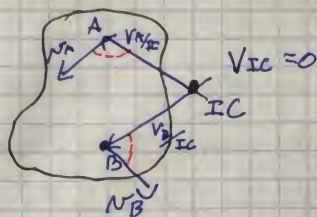 A
VA
VA/IC
VIC = 0
IC
VB/IC
B
VB